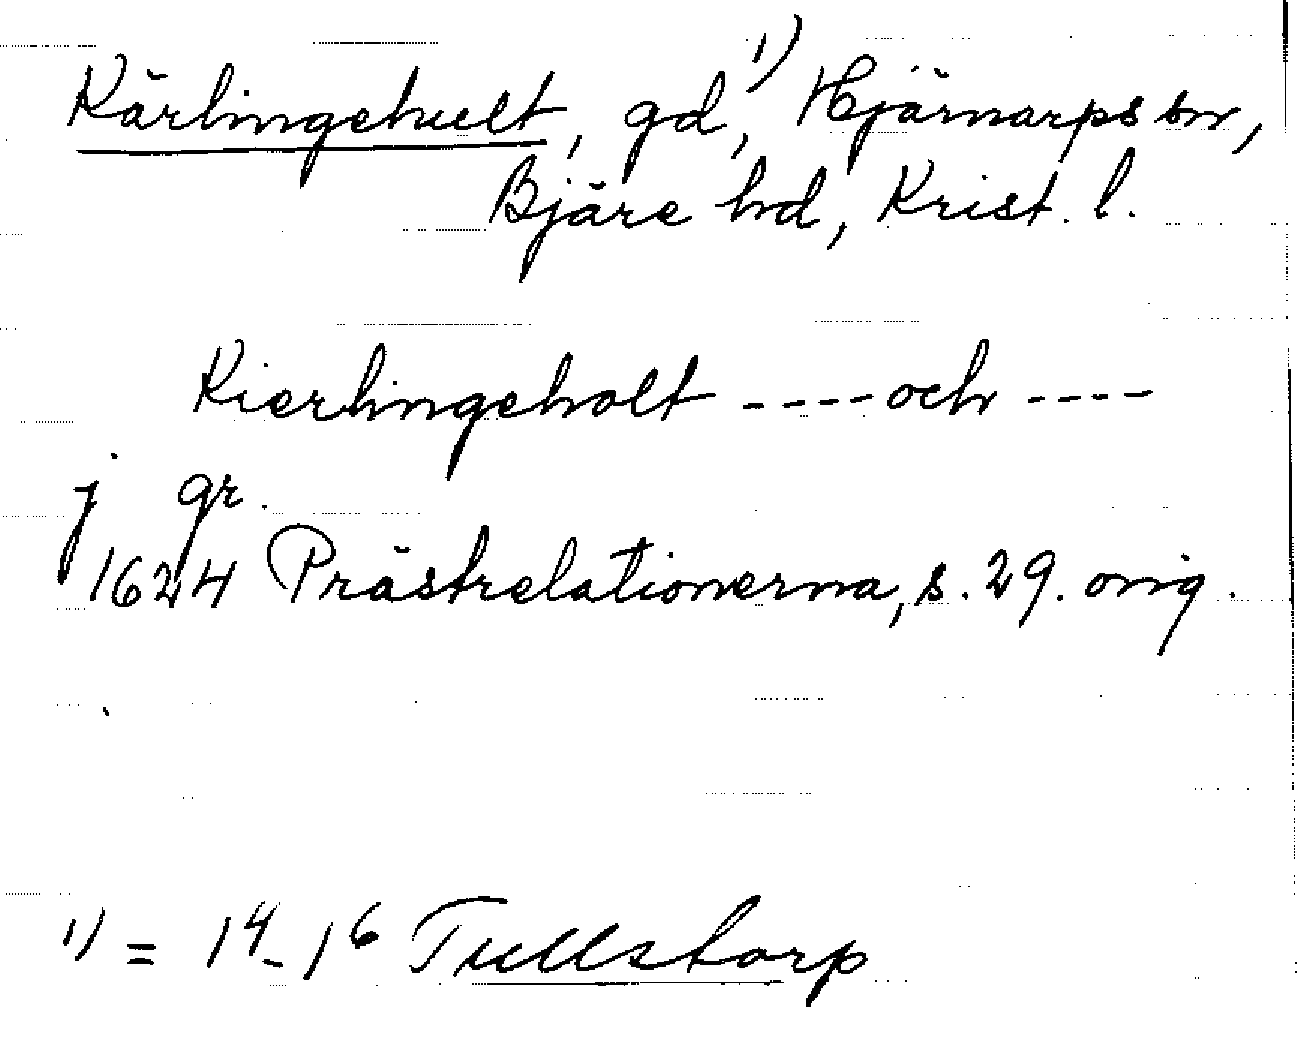 Kärlingehult, gd,¹⁾ Hjärnarps sn,
Bjäre hd, Krist. l.
Kierlingeholt ---- och ----
j gr.
1624 Prästrelationerna, s. 29. orig.
¹⁾ = 1⁴-1⁶ Tullstorp